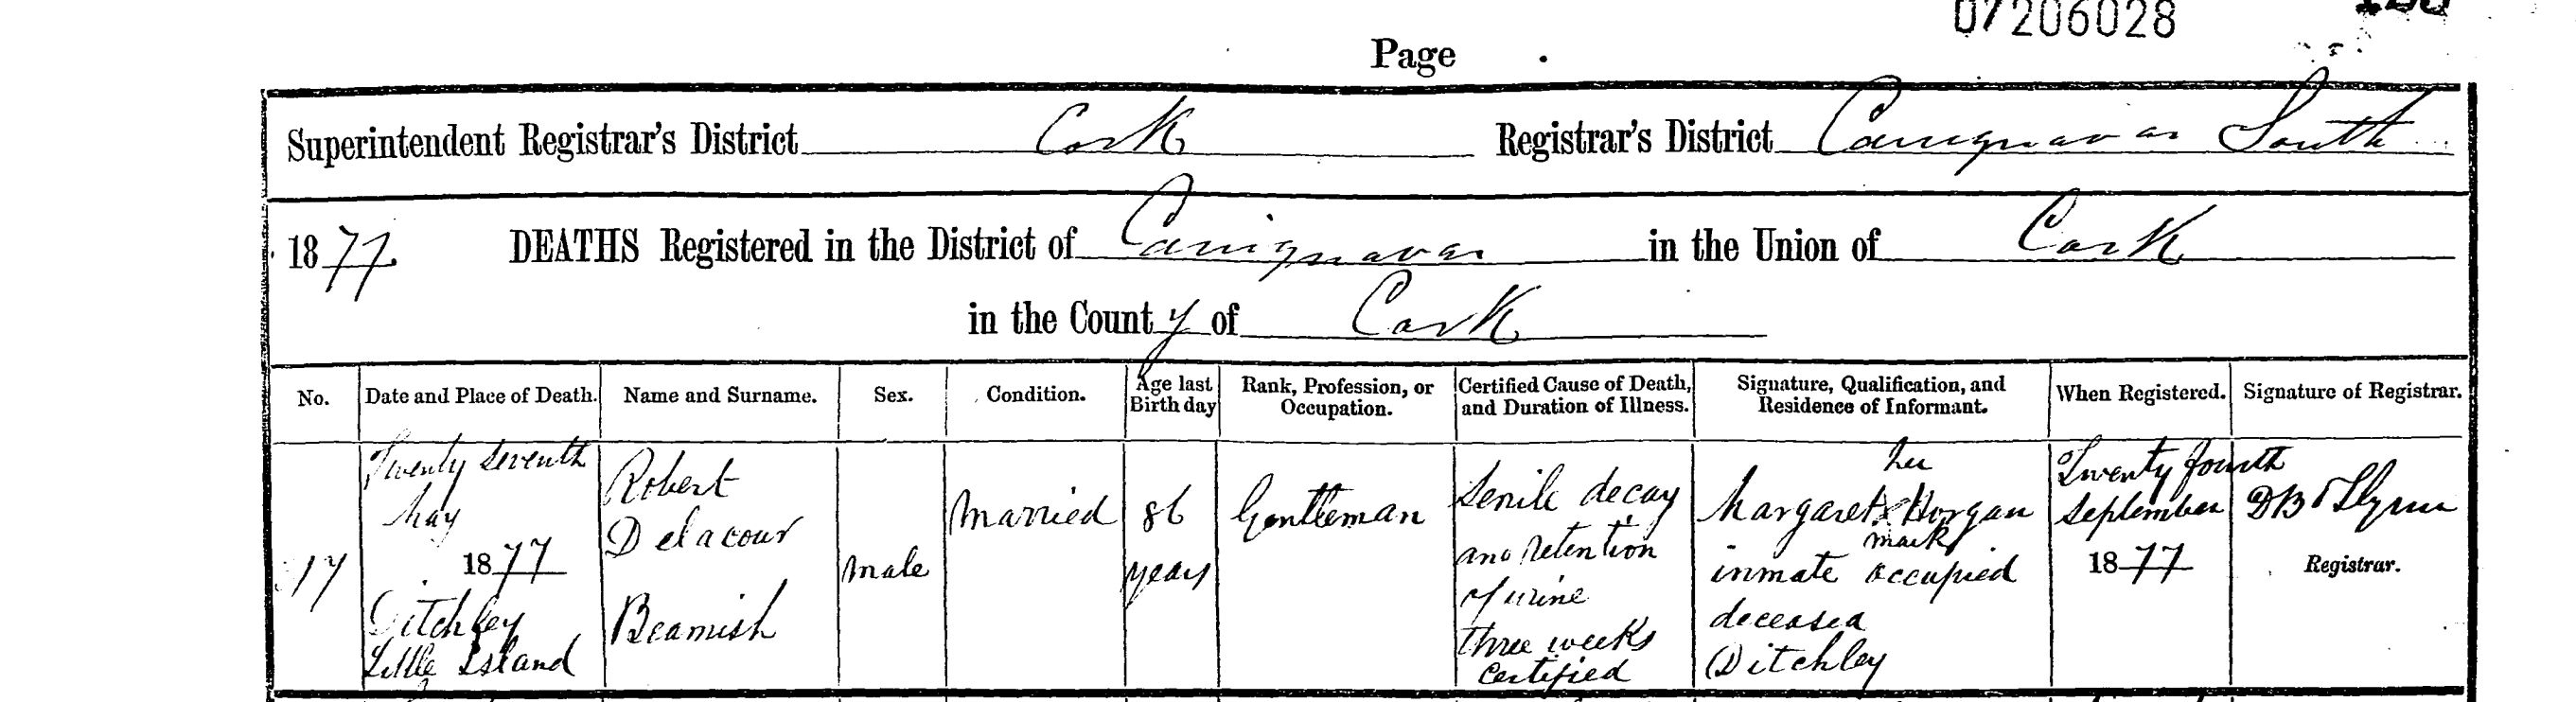 07206028
Page
Superintendent Registrar's District Cork Registrar's District Carrignavar South
1877 DEATHS Registered in the District of Carrignavar in the Union of Cork
in the County of Cork
No.
Date and Place of Death.
Name and Surname.
Sex.
Condition.
Age last
Birth day
Rank, Profession, or
Occupation.
Certified Cause of Death,
and Duration of Illness.
Signature, Qualification, and
Residence of Informant.
When Registered.
Signature of Registrar.
17
Twenty seventh
May
1877
Ditchley
Little Island
Robert
Delacour
Beamish
male
Married
86
years
Gentleman
Senile decay
and retention
of urine
three weeks
certified
her
Margaret X Horgan
mark
inmate occupied
deceased
Ditchley
Twenty fourth
September
1877
Registrar.